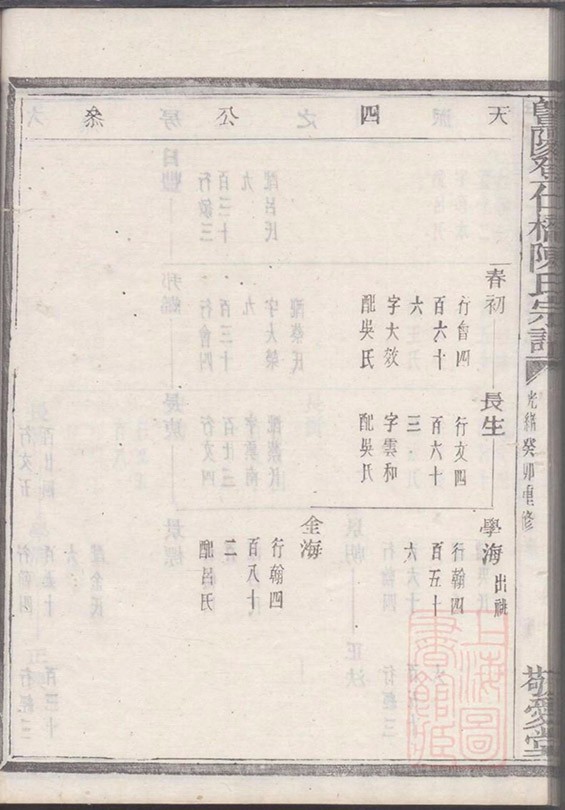 暨陽孝仁橋陳氏宗譜
光緒癸卯重修
敬愛堂
天四公系
春初
行會四
百六十
六
字大效
配吳氏
長生
行文四
百六十
三
字雲和
配吳氏
學海
出祧
行翰四
百五十
六
金海
行翰四
百八十
二
配呂氏
上海圖
書館藏